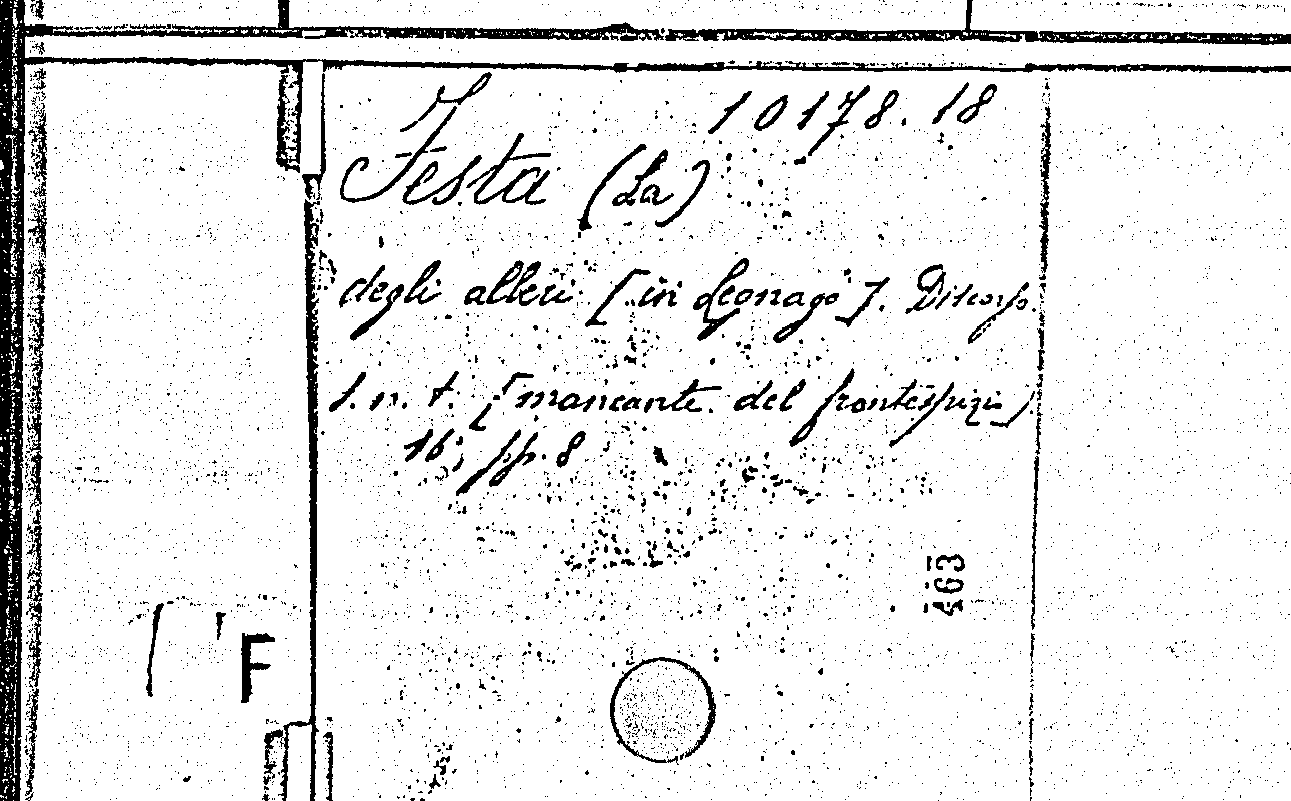 10178.18
Festa (La)
degli alberi [in Legnago]. Discorso.
s. n. t. [mancante del frontespizio]
16°, pp. 8
463
F